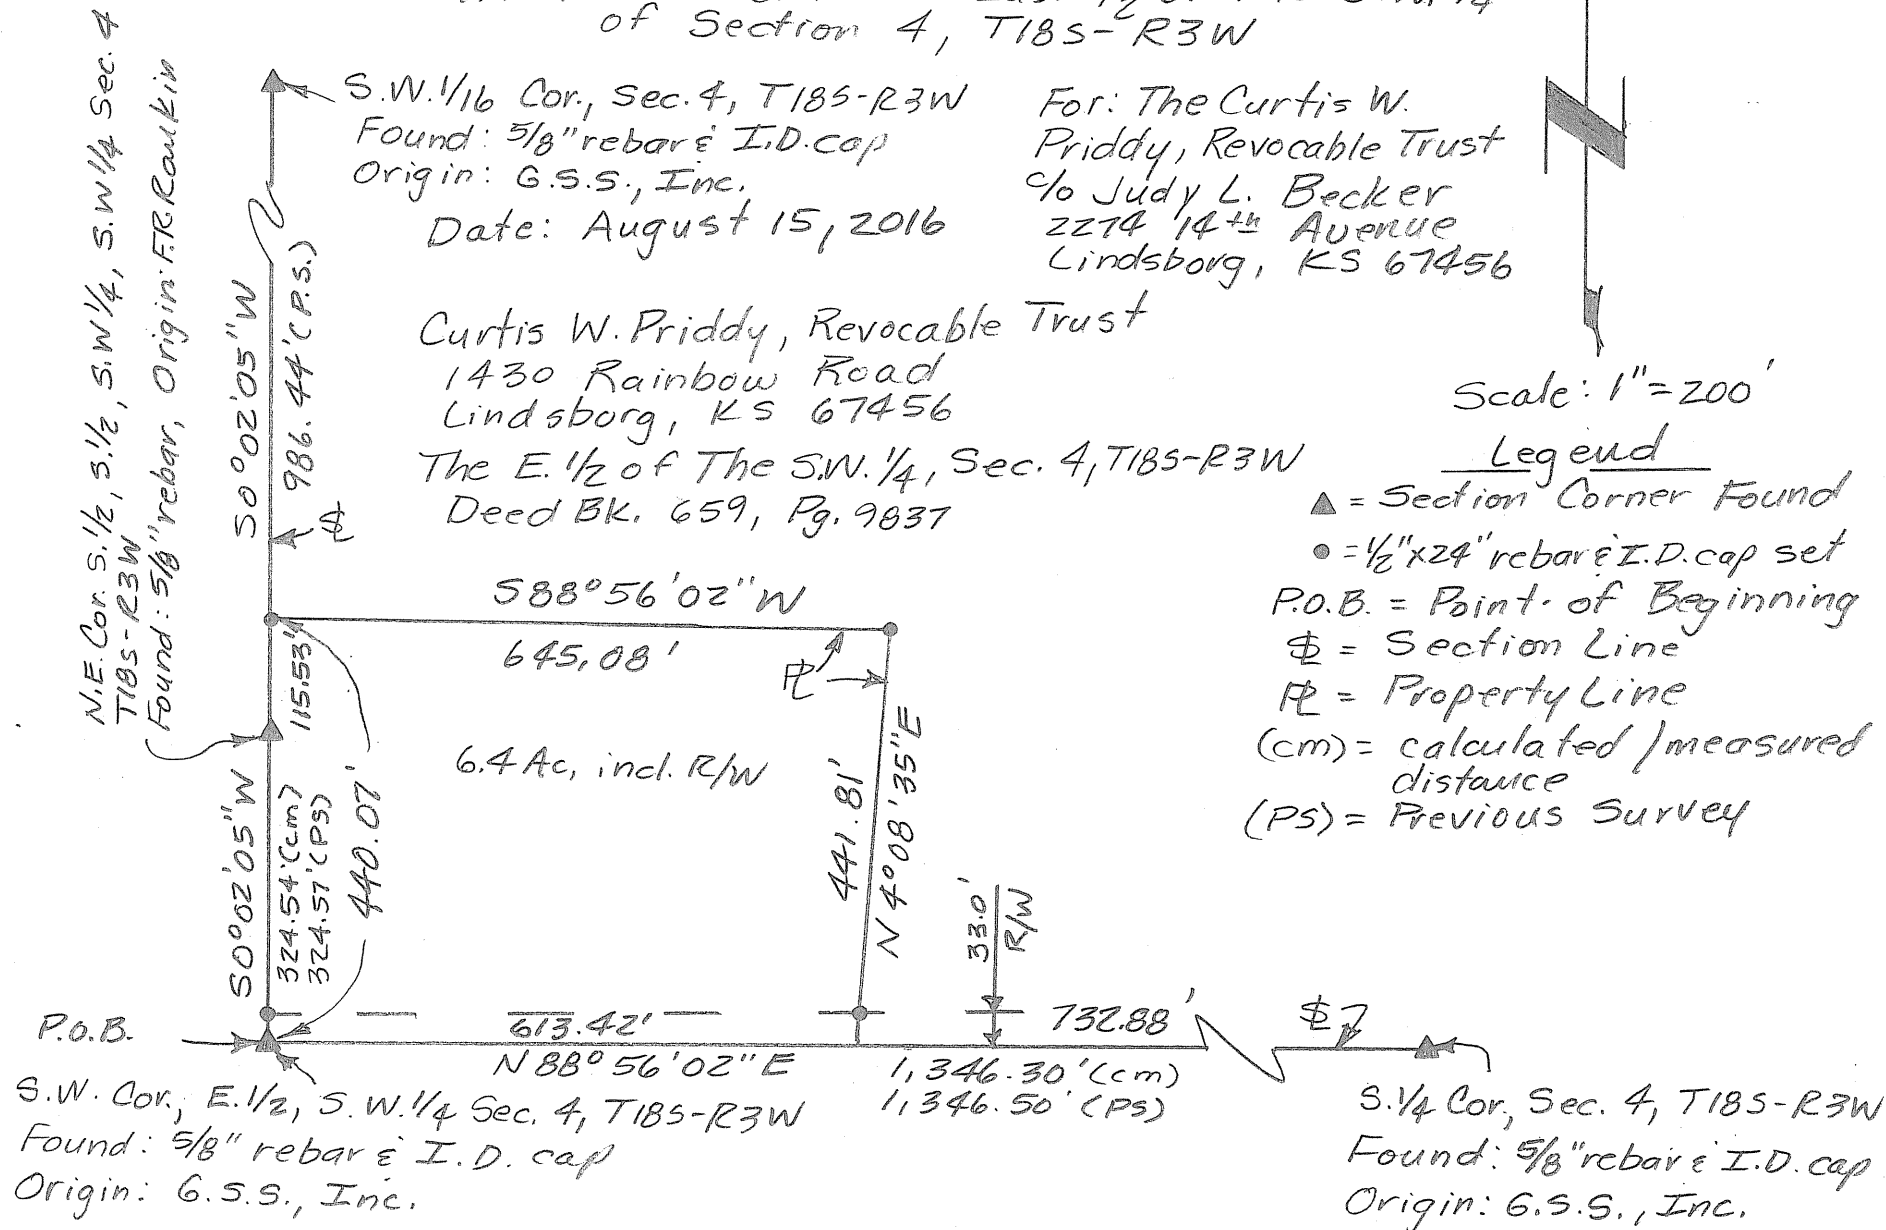 of Section 4, T18S-R3W
S.W. 1/16 Cor., Sec. 4, T18S-R3W
Found: 5/8" rebar & I.D. cap
Origin: G.S.S., Inc.
Date: August 15, 2016
For: The Curtis W.
Priddy, Revocable Trust
c/o Judy L. Becker
2274 14th Avenue
Lindsborg, KS 67456
N.E. Cor. S.1/2, S.1/2, S.W 1/4, S.W 1/4 Sec. 4
T18S-R3W
Found: 5/8" rebar, Origin: F.R. Raukin
S0°02'05"W
986.44'(P.S.)
Curtis W. Priddy, Revocable Trust
1430 Rainbow Road
Lindsborg, KS 67456
The E. 1/2 of The S.W. 1/4, Sec. 4, T18S-R3W
Deed Bk. 659, Pg. 9837
Scale: 1"=200'
Legend
▲ = Section Corner Found
● = 1/2"x24" rebar & I.D. cap set
P.O.B. = Point of Beginning
SL = Section Line
PL = Property Line
(cm) = calculated / measured
distance
(PS) = Previous Survey
SL
S88°56'02"W
645.08'
PL
115.53'
6.4 Ac, incl. R/W
S0°02'05"W
324.54'(cm)
324.57'(PS)
440.07'
441.81'
N4°08'35"E
33.0'
R/W
P.O.B.
613.42'
732.88'
SL
N88°56'02"E
1,346.30'(cm)
1,346.50'(PS)
S.W. Cor., E.1/2, S.W.1/4 Sec. 4, T18S-R3W
Found: 5/8" rebar & I.D. cap
Origin: G.S.S., Inc.
S.1/4 Cor., Sec. 4, T18S-R3W
Found: 5/8" rebar & I.D. cap
Origin: G.S.S., Inc.